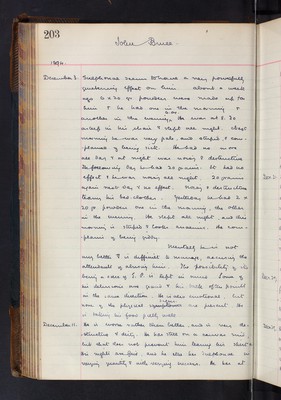 203
John Bruce
1894
December 8. Sulphonal seems to have a very powerfully
quietening effect on him. About a week
ago 2 x 20 gr powders were made up for
him & he had one in the morning &
another in the evening. He was at 8.30
asleep in his chair & slept all night. Next
morning he was very pale and stupid & com-
plained of being sick. He had no more
all day & at night was noisy & destructive.
The following day he had 20 grains. It had no
effect & he was noisy all night. 20 grains
again next day & no effect. Noisy & destructive
tearing his bed clothes. Yesterday he had 2 x
20 gr powders one in the morning, the other
in the evening. He slept all night and this
morning is stupid & looks anaemic. He com-
plains of being giddy.
Mentally he is not
any better & is difficult to manage, accusing the
attendants of abusing him. The possibility of its
being a case of G. P. is kept in mind. Some of
his delusions are grand & his talk often
in the same direction. He is also emotional, but
none of the physical signs are present. He
is taking his food fairly well.
December 11. He is worse rather than better, and is very de-
structive & dirty. He has still on a canvas suit
but that does not prevent him tearing his sheets
his nights are and he still has Sulphonal in
varying quantity, & with varying success. He has at